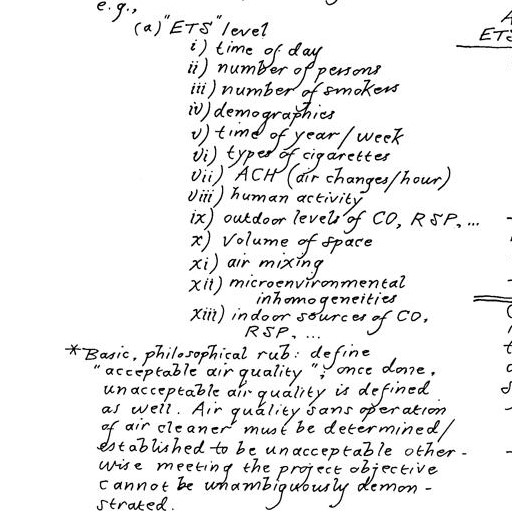 e.g.,
(a) "ETS" level
i) time of day
ii) number of persons
iii) number of smokers
iv) demographics
v) time of year/week
vi) types of cigarettes
vii) ACH (air changes/hour)
viii) human activity
ix) outdoor levels of CO, RSP, ...
x) volume of space
xi) air mixing
xii) microenvironmental
inhomogeneities
xiii) indoor sources of CO,
RSP, ...
* Basic, philosophical rub: define
"acceptable air quality"; once done,
unacceptable air quality is defined
as well. Air quality sans operation
of air cleaner must be determined/
established to be unacceptable other-
wise meeting the project objective
cannot be unambiguously demon-
strated.
ETS